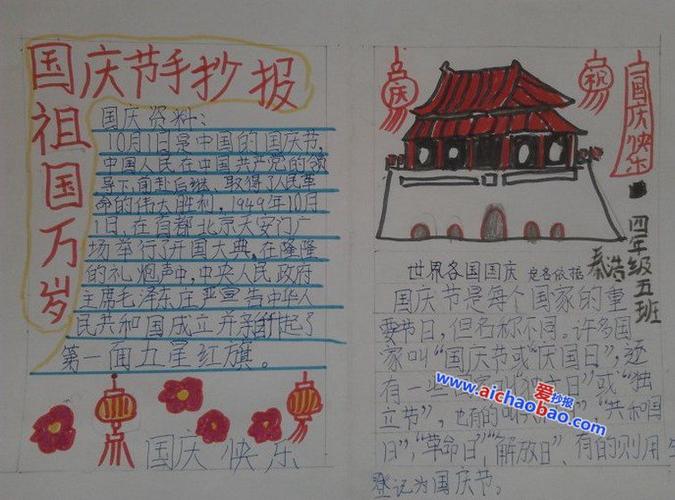 国庆节手抄报
祖国万岁
国庆资料:
10月1日是中国的国庆节,
中国人民在中国共产党的领
导下,前赴后继、取得了人民革
命的伟大胜利。1949年10月
1日,在首都北京天安门广
场举行了开国大典,在隆隆
的礼炮声中,中央人民政府
主席毛泽东庄严宣告中华人
民共和国成立并亲自升起了
第一面五星红旗。
国庆快乐
庆
祝
国庆快乐
四年级五班
秦浩
世界各国国庆 定名依据
国庆节是每个国家的重
要节日,但名称不同。许多国
家叫“国庆节或“庆国日”,还
有一些国家 “独立日”或“独
立节”,也有的叫 “共和国
日”,“革命日”,“解放日、有的则用
登记为国庆节。
爱抄报
www.aichaobao.com